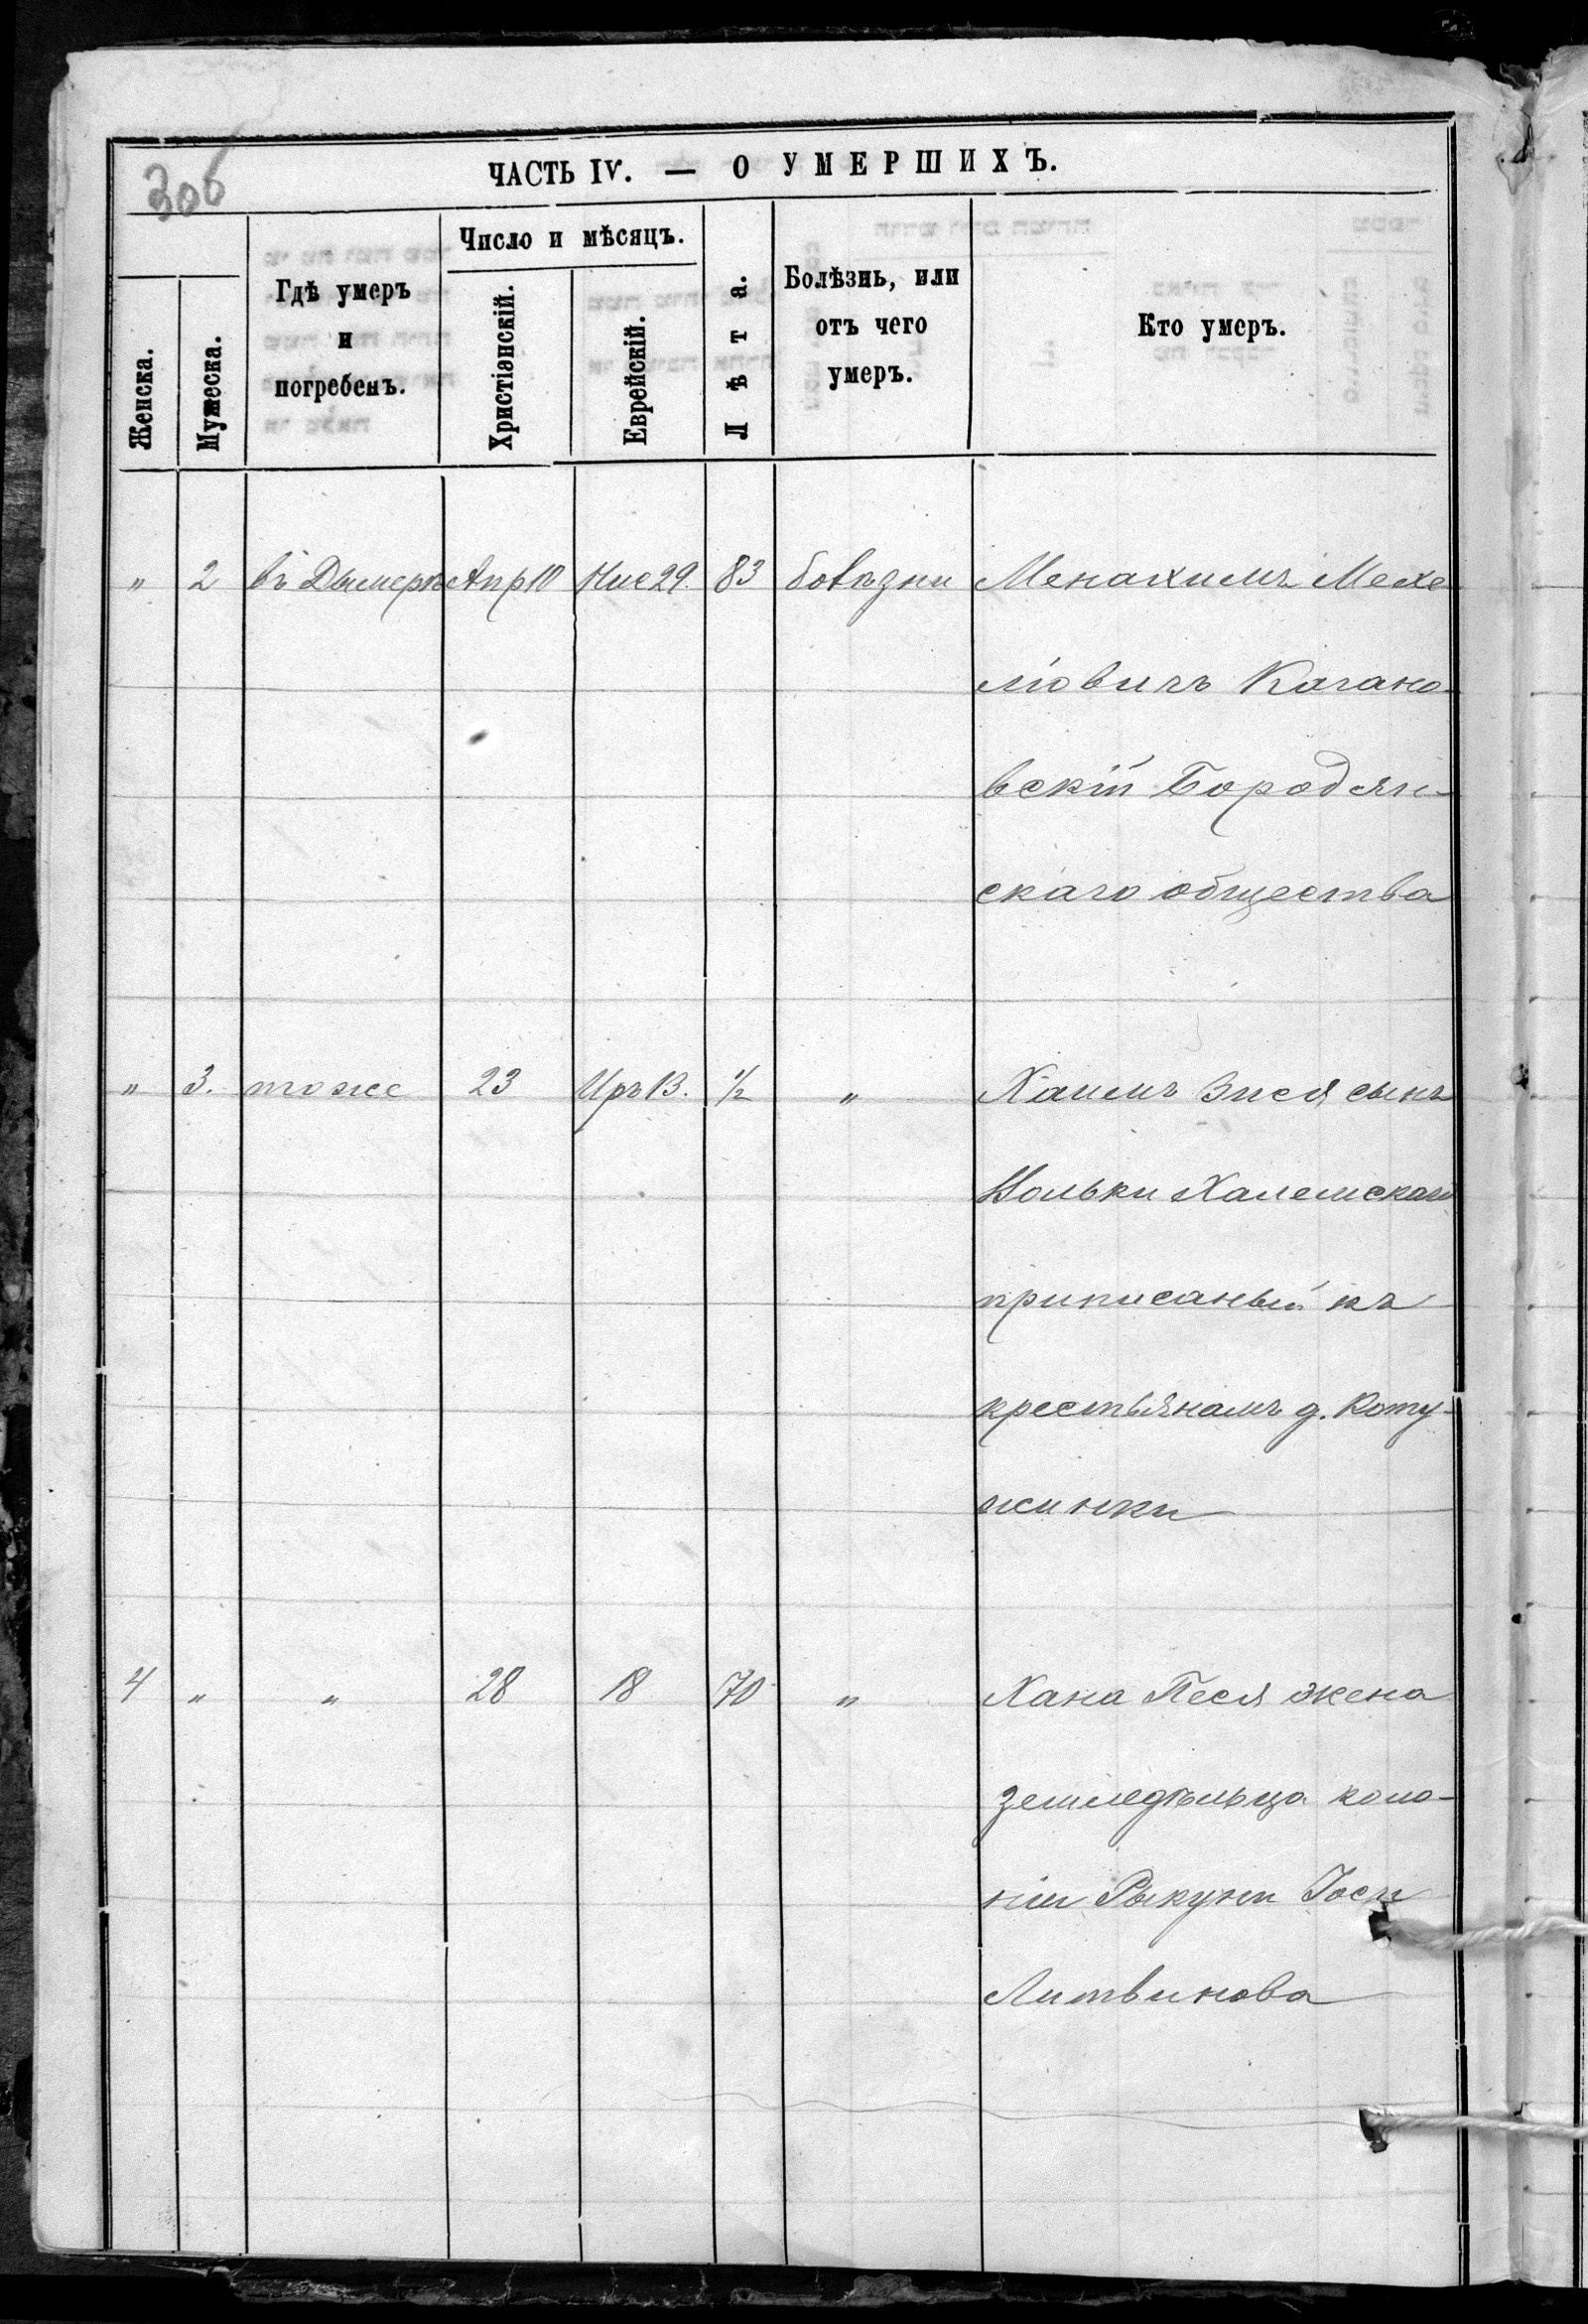 306
ЧАСТЬ IV. — О УМЕРШИХЪ.
Женска.
Мужеска.
Гдѣ умеръ
и
погребенъ.
Число и мѣсяцъ.
Христіанскій.
Еврейскій.
Лѣта.
Болѣзнь, или
отъ чего
умеръ.
Кто умеръ.
" 2 въ Дымерѣ Апр 10 Нис 29. 83 болѣзни Менахимъ Мехе
ліовичъ Кагано-
вскій Бородян-
скаго общества
" 3. тоже 23 Иръ 13. 1/2 " Хаимъ Зися сынъ
Хапемскаго
приписаный къ
крестьянамъ д. Коту-
жинки
4 " " 28 18 70 " Хана Песя жена
земледѣльца коло-
ніи Рыкуни Іоси
Литвинова